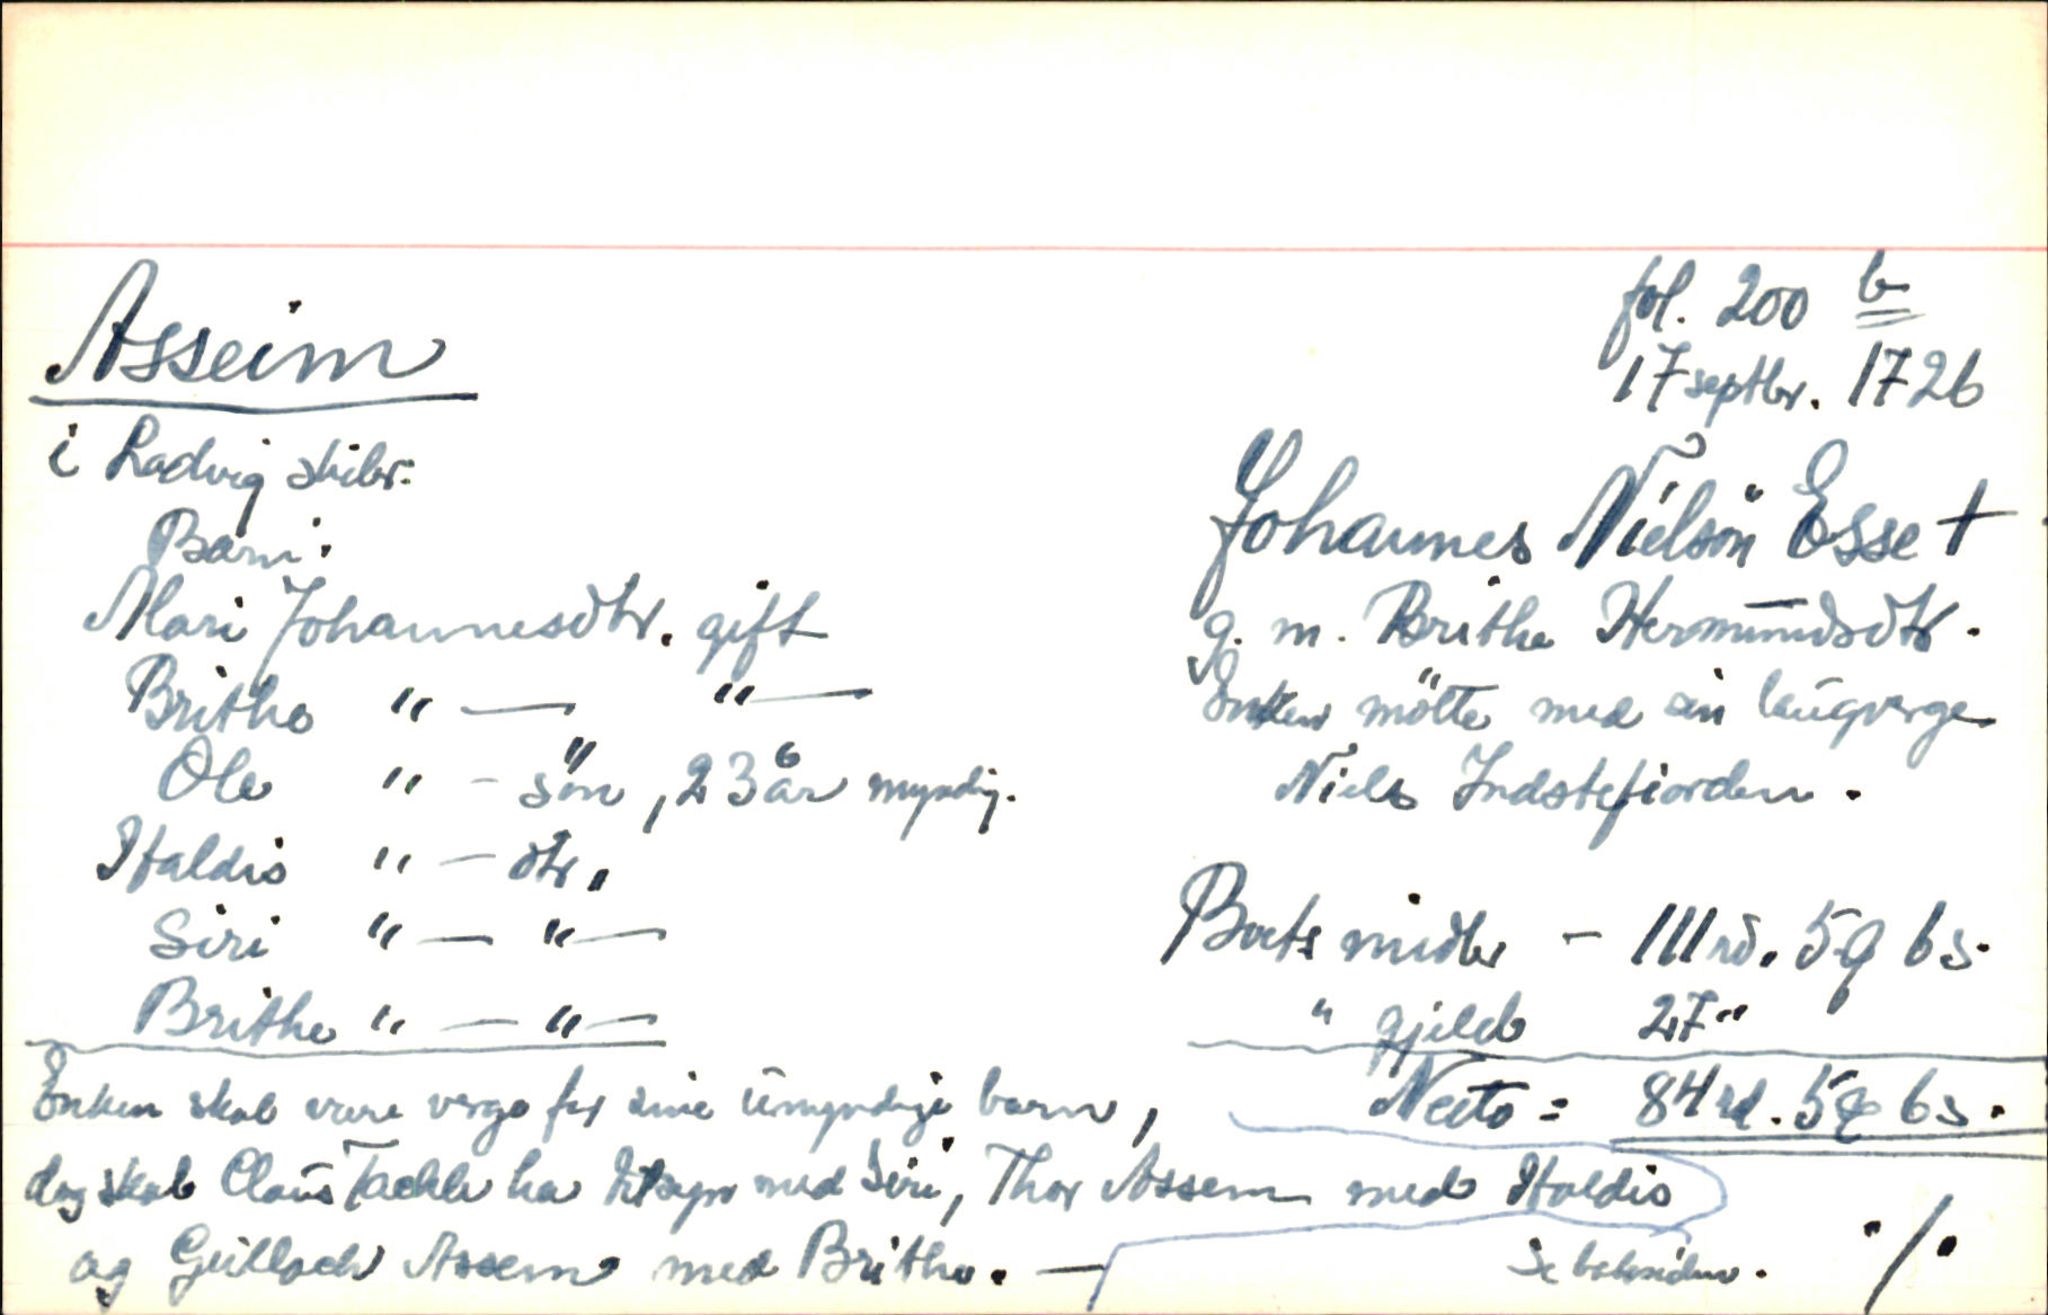 Asseim
i Ladvig skibr:
Barn:
Mari Johannesdtr. gift
Brithe " — " —
Ole " - sön, 23 år myndig.
Haldis " — dtr.
Siri " — " —
Brithe " — " —
fol. 200 b
17 septbr. 1726
Johannes Nielsön Esse +
g. m. Brithe Hermundsdtr.
Enken mötte med sin laugverge
Niels Indstefiorden.
Boets midler - 111 rd. 5 q 6 s.
" gjeld 27 "
Netto = 84 rd. 5 q 6 s.
Enken skal være verge for sine umyndige barn,
dog skal Claus Tackle ha tilsyn med Siri, Thor Assem med Haldis
og Gullach Assem med Brithe. —
Se baksiden. ·/·